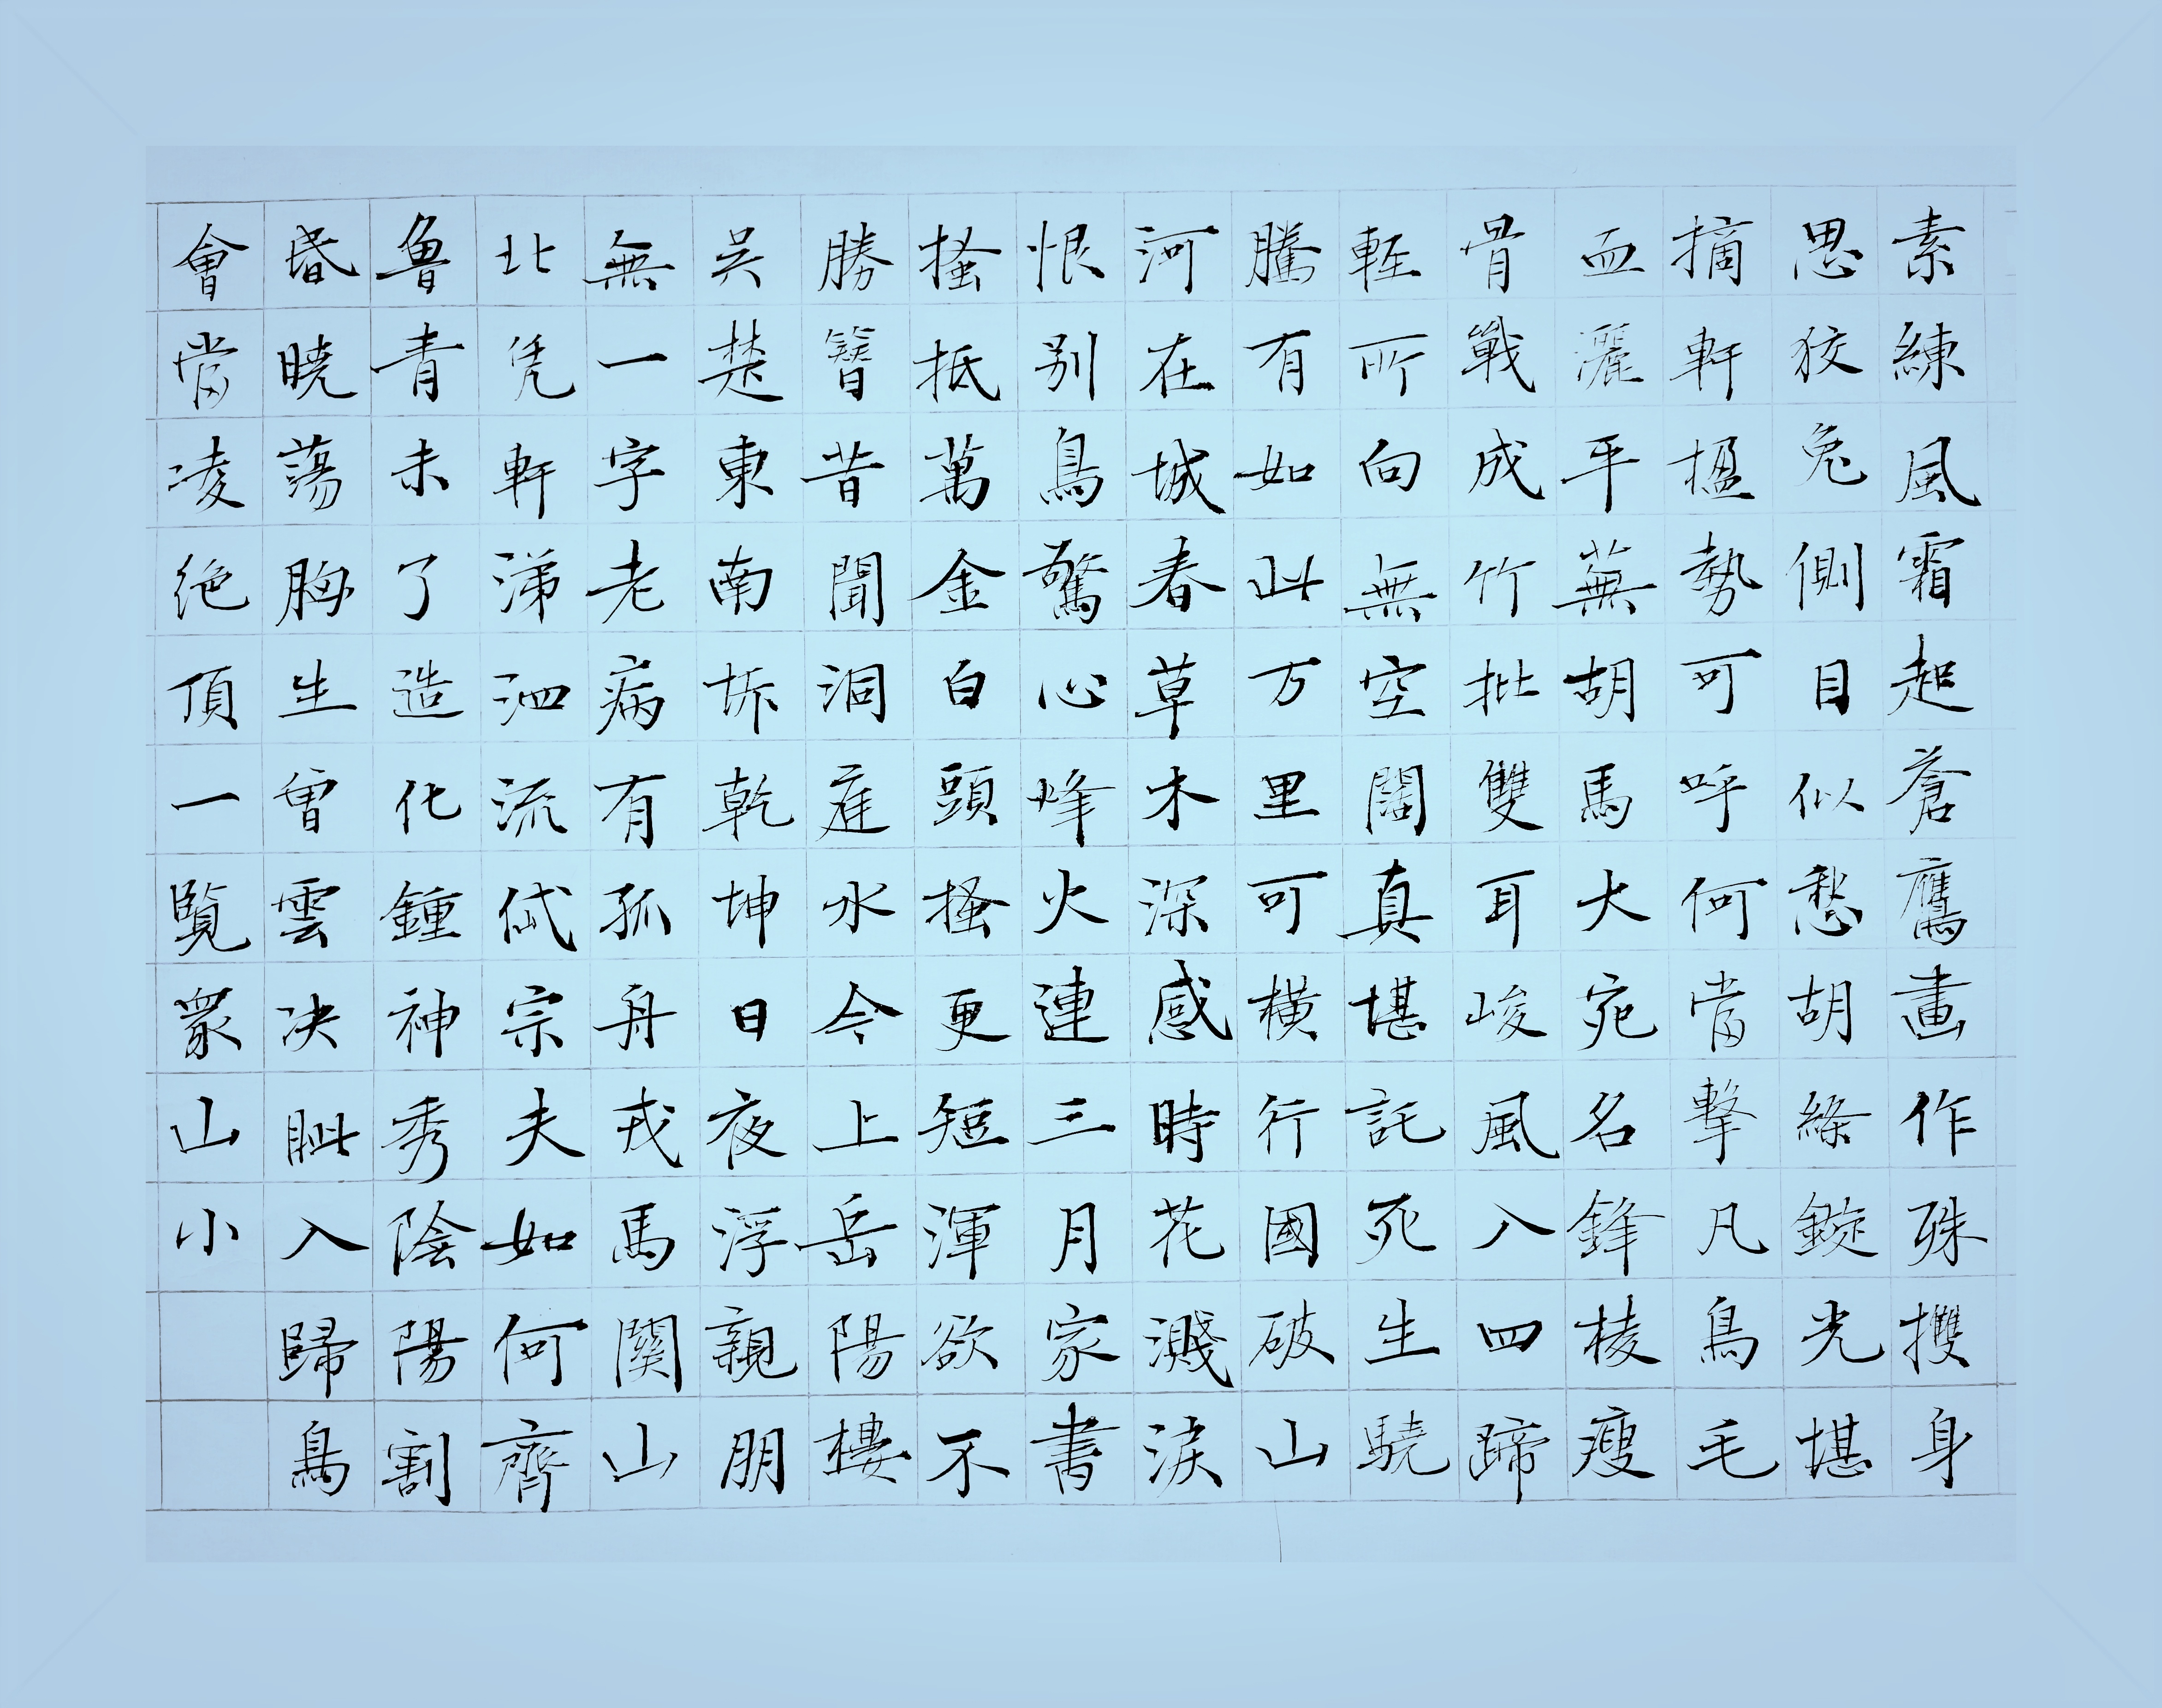 素練風霜起蒼鷹畫作殊㩳身
思狡兔側目似愁胡絛鏇光堪
摘軒楹勢可呼何當擊凡鳥毛
血灑平蕪胡馬大宛名鋒棱瘦
骨戰成竹批雙耳峻風入四蹄
輕所向無空闊真堪託死生驍
騰有如此万里可橫行國破山
河在城春草木深感時花濺淚
恨别鳥驚心烽火連三月家書
搔抵萬金白頭搔更短渾欲不
勝簪昔聞洞庭水今上岳陽樓
吴楚東南坼乾坤日夜浮親朋
無一字老病有孤舟戎馬關山
北凭軒涕泗流岱宗夫如何齊
魯青未了造化鍾神秀陰陽割
昏曉蕩胸生曾雲决眦入歸鳥
會當凌絶頂一覽衆山小